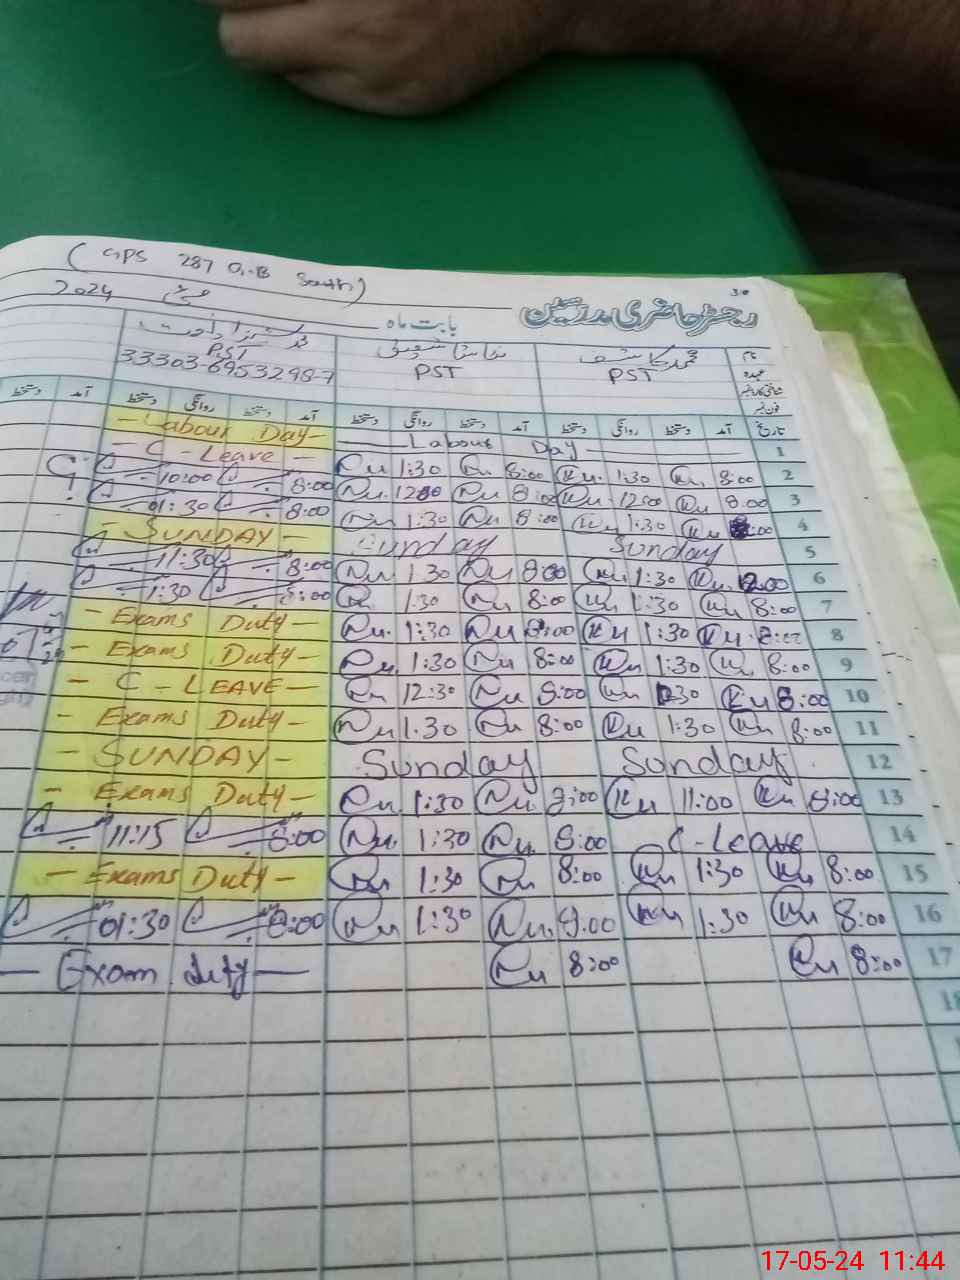 (GPS 287 G.B South)
30
رجسٹر حاضری مدرسین بابت ماہ مئی 2024
نام محمد کاشف
عہدہ PST PST PST
شناختی کارڈ نمبر 33303-6953298-7
فون نمبر
تاریخ آمد دستخط روانگی دستخط آمد دستخط روانگی دستخط آمد دستخط روانگی دستخط آمد دستخط
- Labour Day - Labour Day 1
- C - Leave - 1:30 8:00 1:30 8:00 2
10:00 8:00 1200 8:00 12:00 8:00 3
01:30 8:00 1:30 8:00 1:30 :00 4
- SUNDAY - Sunday Sunday 5
11:30 8:00 1:30 8:00 1:30 8:00 6
1:30 8:00 1:30 8:00 1:30 8:00 7
- Exams Duty - 1:30 8:00 1:30 8:00 8
- Exams Duty - 1:30 8:00 1:30 8:00 9
- C - LEAVE - 12:30 8:00 1230 8:00 10
- Exams Duty - 1:30 8:00 1:30 8:00 11
- SUNDAY - Sunday Sunday 12
- Exams Duty - 1:30 8:00 11:00 8:00 13
11:15 8:00 1:30 8:00 C-Leave 14
- Exams Duty - 1:30 8:00 1:30 8:00 15
01:30 8:00 1:30 8:00 1:30 8:00 16
- Exam duty - 8:00 8:00 17
18
17-05-24 11:44